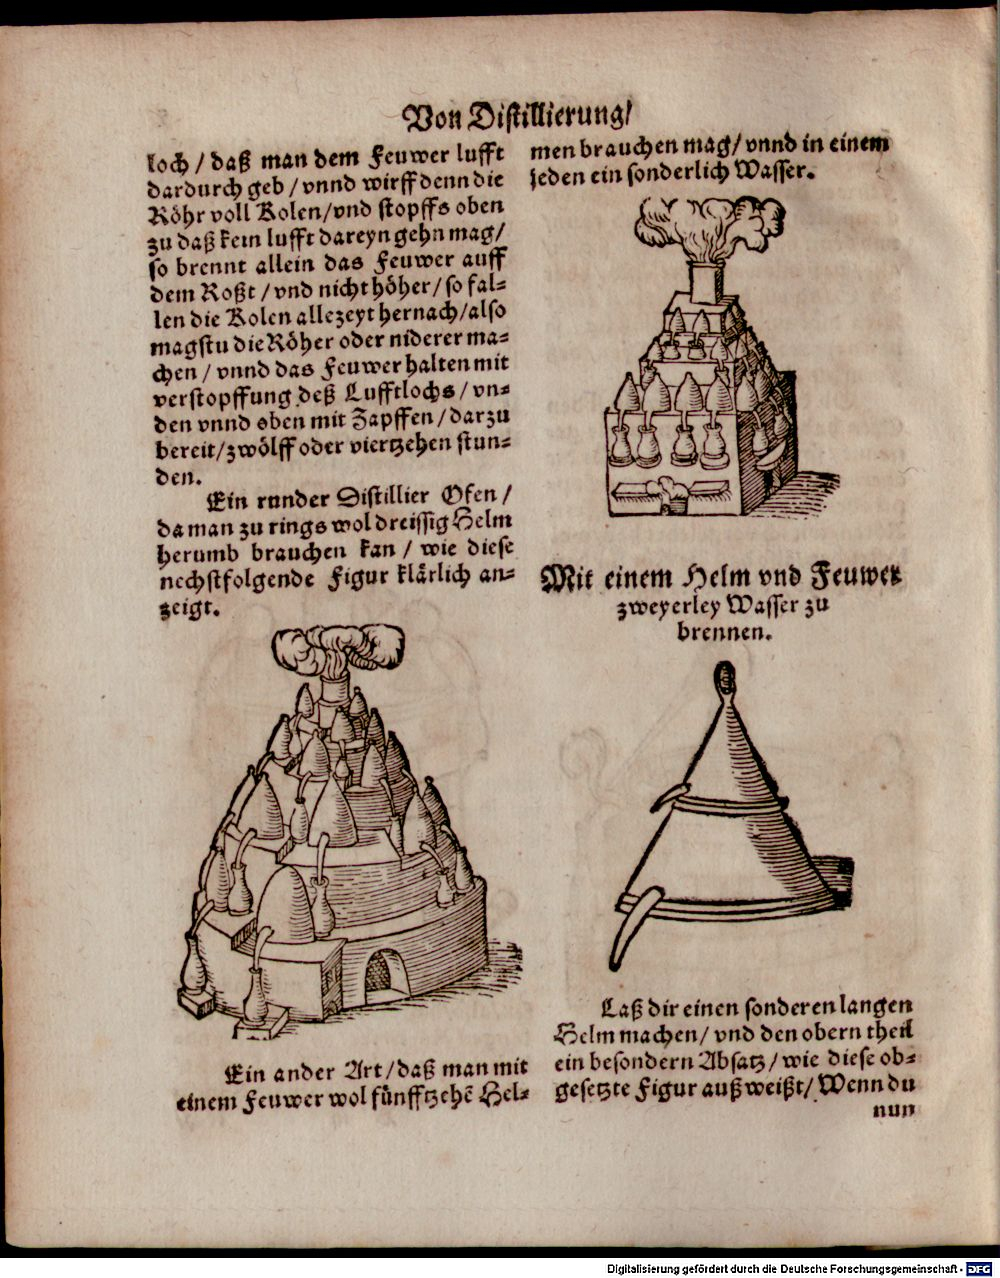 Von Distillierung/
loch / daß man dem Feuwer lufft
dardurch geb / vnnd wirff denn die
Röhr voll Kolen/vnd stopffs oben
zu daß kein lufft dareyn gehn mag/
so brennt allein das Feuwer auff
dem Roßt / vnd nicht höher/ so fal-
len die Kolen allezeyt hernach/also
magstu die Röher oder niderer ma-
chen / vnnd das Feuwer halten mit
verstopffung deß Lufftlochs / vn-
den vnnd oben mit Zapffen / darzu
bereit/zwölff oder viertzehen stun-
den.
Ein runder Distillier Ofen /
da man zu rings wol dreissig Helm
herumb brauchen kan / wie diese
nechstfolgende Figur klärlich an-
zeigt.
Ein ander Art/daß man mit
einem Feuwer wol fünfftzehẽ Hel-
men brauchen mag/ vnnd in einem
jeden ein sonderlich Wasser.
Mit einem Helm vnd Feuwer
zweyerley Wasser zu
brennen.
Laß dir einen sonderen langen
Helm machen/ vnd den obern theil
ein besondern Absatz/ wie diese ob-
gesetzte Figur außweißt/ Wenn du
nun
Digitalisierung gefördert durch die Deutsche Forschungsgemeinschaft - DFG